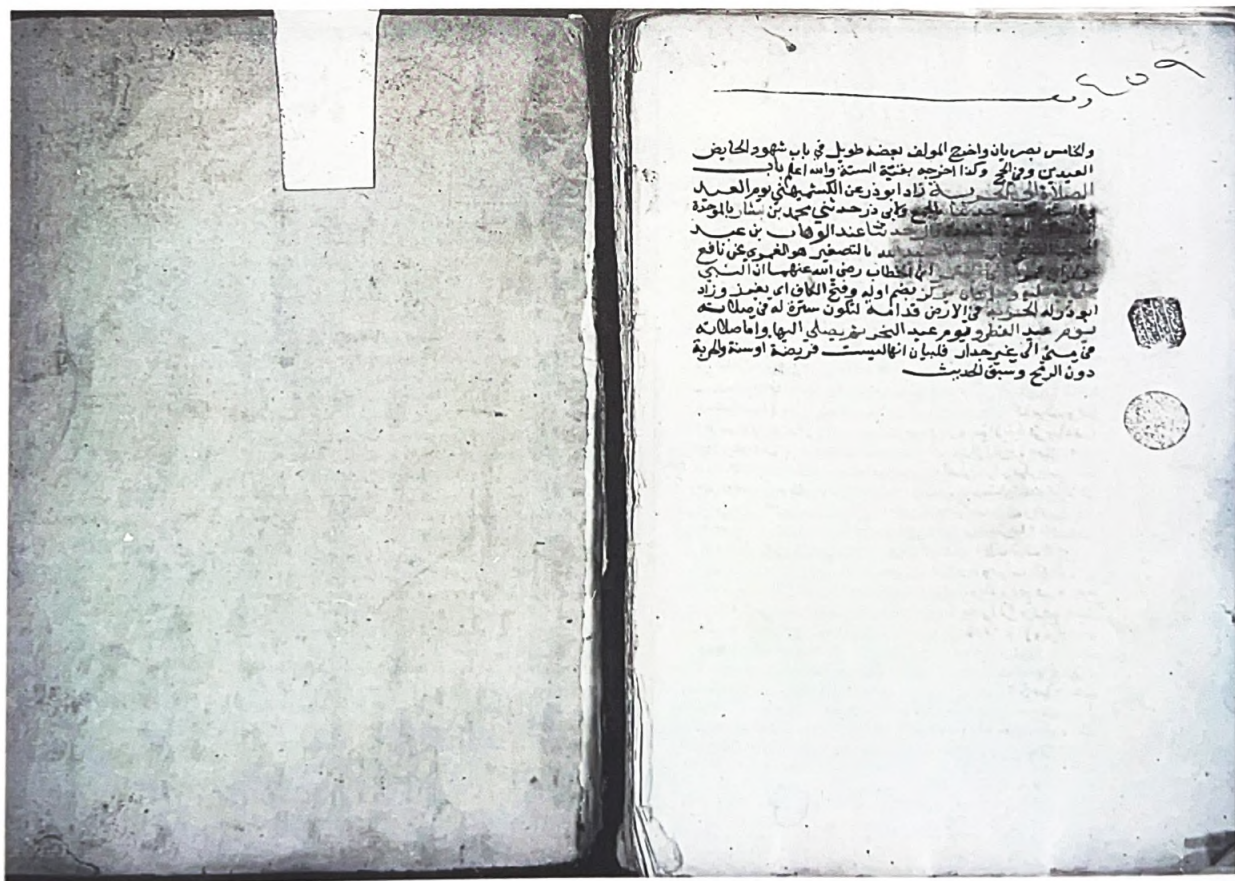 والخامس بصريان واخرج المولف بعضه طويل في باب شهود الحايض
العيدين وفي الحج وكذا اخرجه بقية الستة والله اعلم باب
الصلاة الى الحربة زاد ابوذر عن الكشميهني يوم العيد
بالجمع ولابي ذر حدثني محمد بن بشار بالموحدة
حدثنا عبد الوهاب بن عبد
بالتصغير هو العمري عن نافع
ابن الخطاب رضي الله عنهما ان النبي
تركز بضم اوله وفتح الكاف اي يغرز وزاد
ابوذر له الحربة في الارض قدامه لتكون سترة له في صلاته
يوم عيد الفطر ويوم عيد النحر ثم يصلي اليها واما صلاته
في منى الى غير جدار فلبيان انها ليست فريضة او سنة والحربة
دون الرمح وسبق الحديث